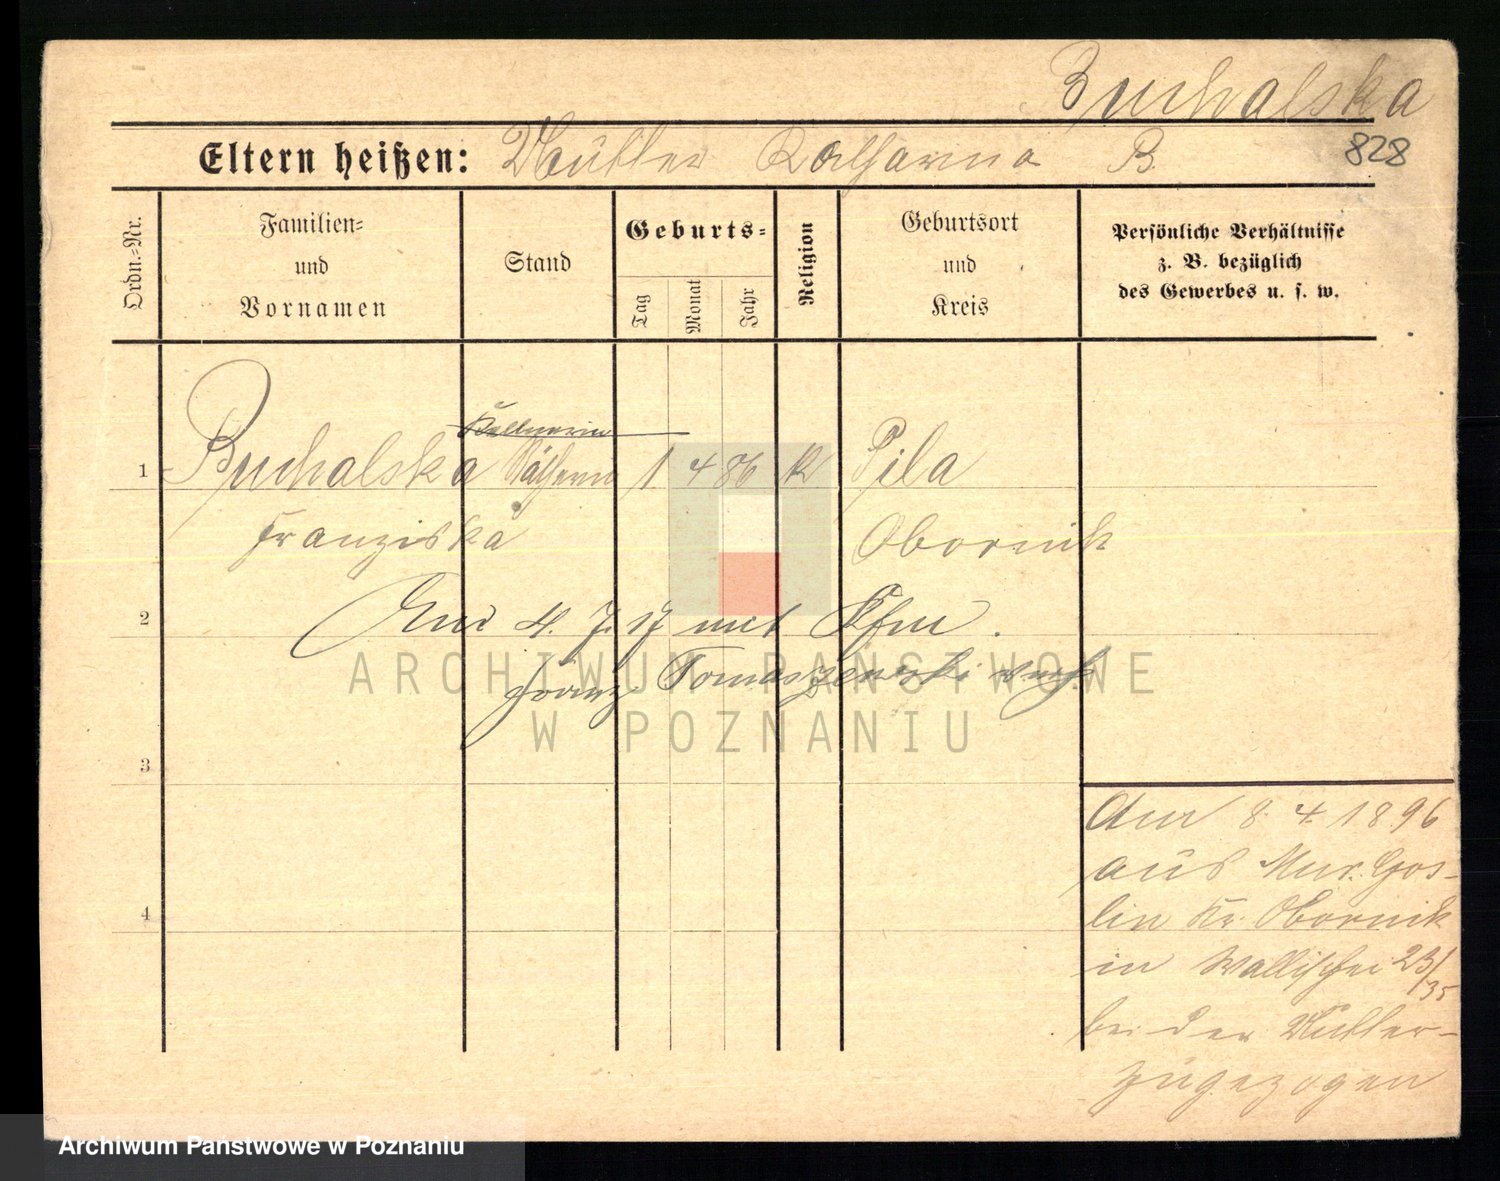 Buchalska
828
Eltern heißen: Mutter Katharina B.
Ordn.=Nr.
Familien=
und
Vornamen
Stand
Geburts=
Tag
Monat
Jahr
Religion
Geburtsort
und
Kreis
Persönliche Verhältnisse
z. B. bezüglich
des Gewerbes u. s. w.
Kellnerin
1 Buchalska Näherin 1 4 86 K Pila
Franziska Obornik
2 Am 4. 7. 17 mit Kfm.
Franz Tomaszewski verh.
3
4
Am 8. 4. 1896
aus Mur. Gos-
lin Kr. Obornik
in Wallischei 23/35
bei der Mutter
zugezogen
ARCHIWUM PAŃSTWOWE
W POZNANIU
Archiwum Państwowe w Poznaniu